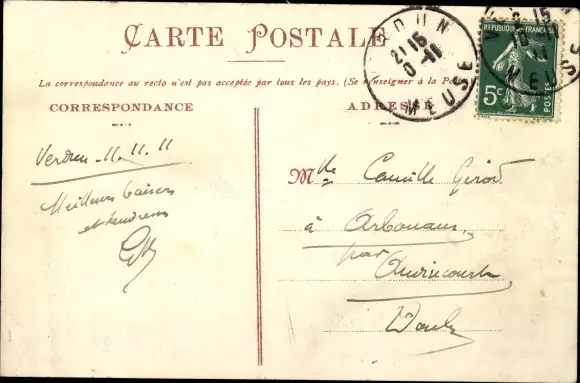 CARTE POSTALE
La correspondance au recto n'est pas acceptée par tous les pays. (Se renseigner à la Po
CORRESPONDANCE
ADRESSE
RDUN
21 15
MEUSE
REPUBLIQUE FRANÇAISE
5c
POSTES
Verdun 11. 11. 11
Meilleurs baisers
et
Mlle Camille Girod
à Arbouans
par
Audincourt
Doubs